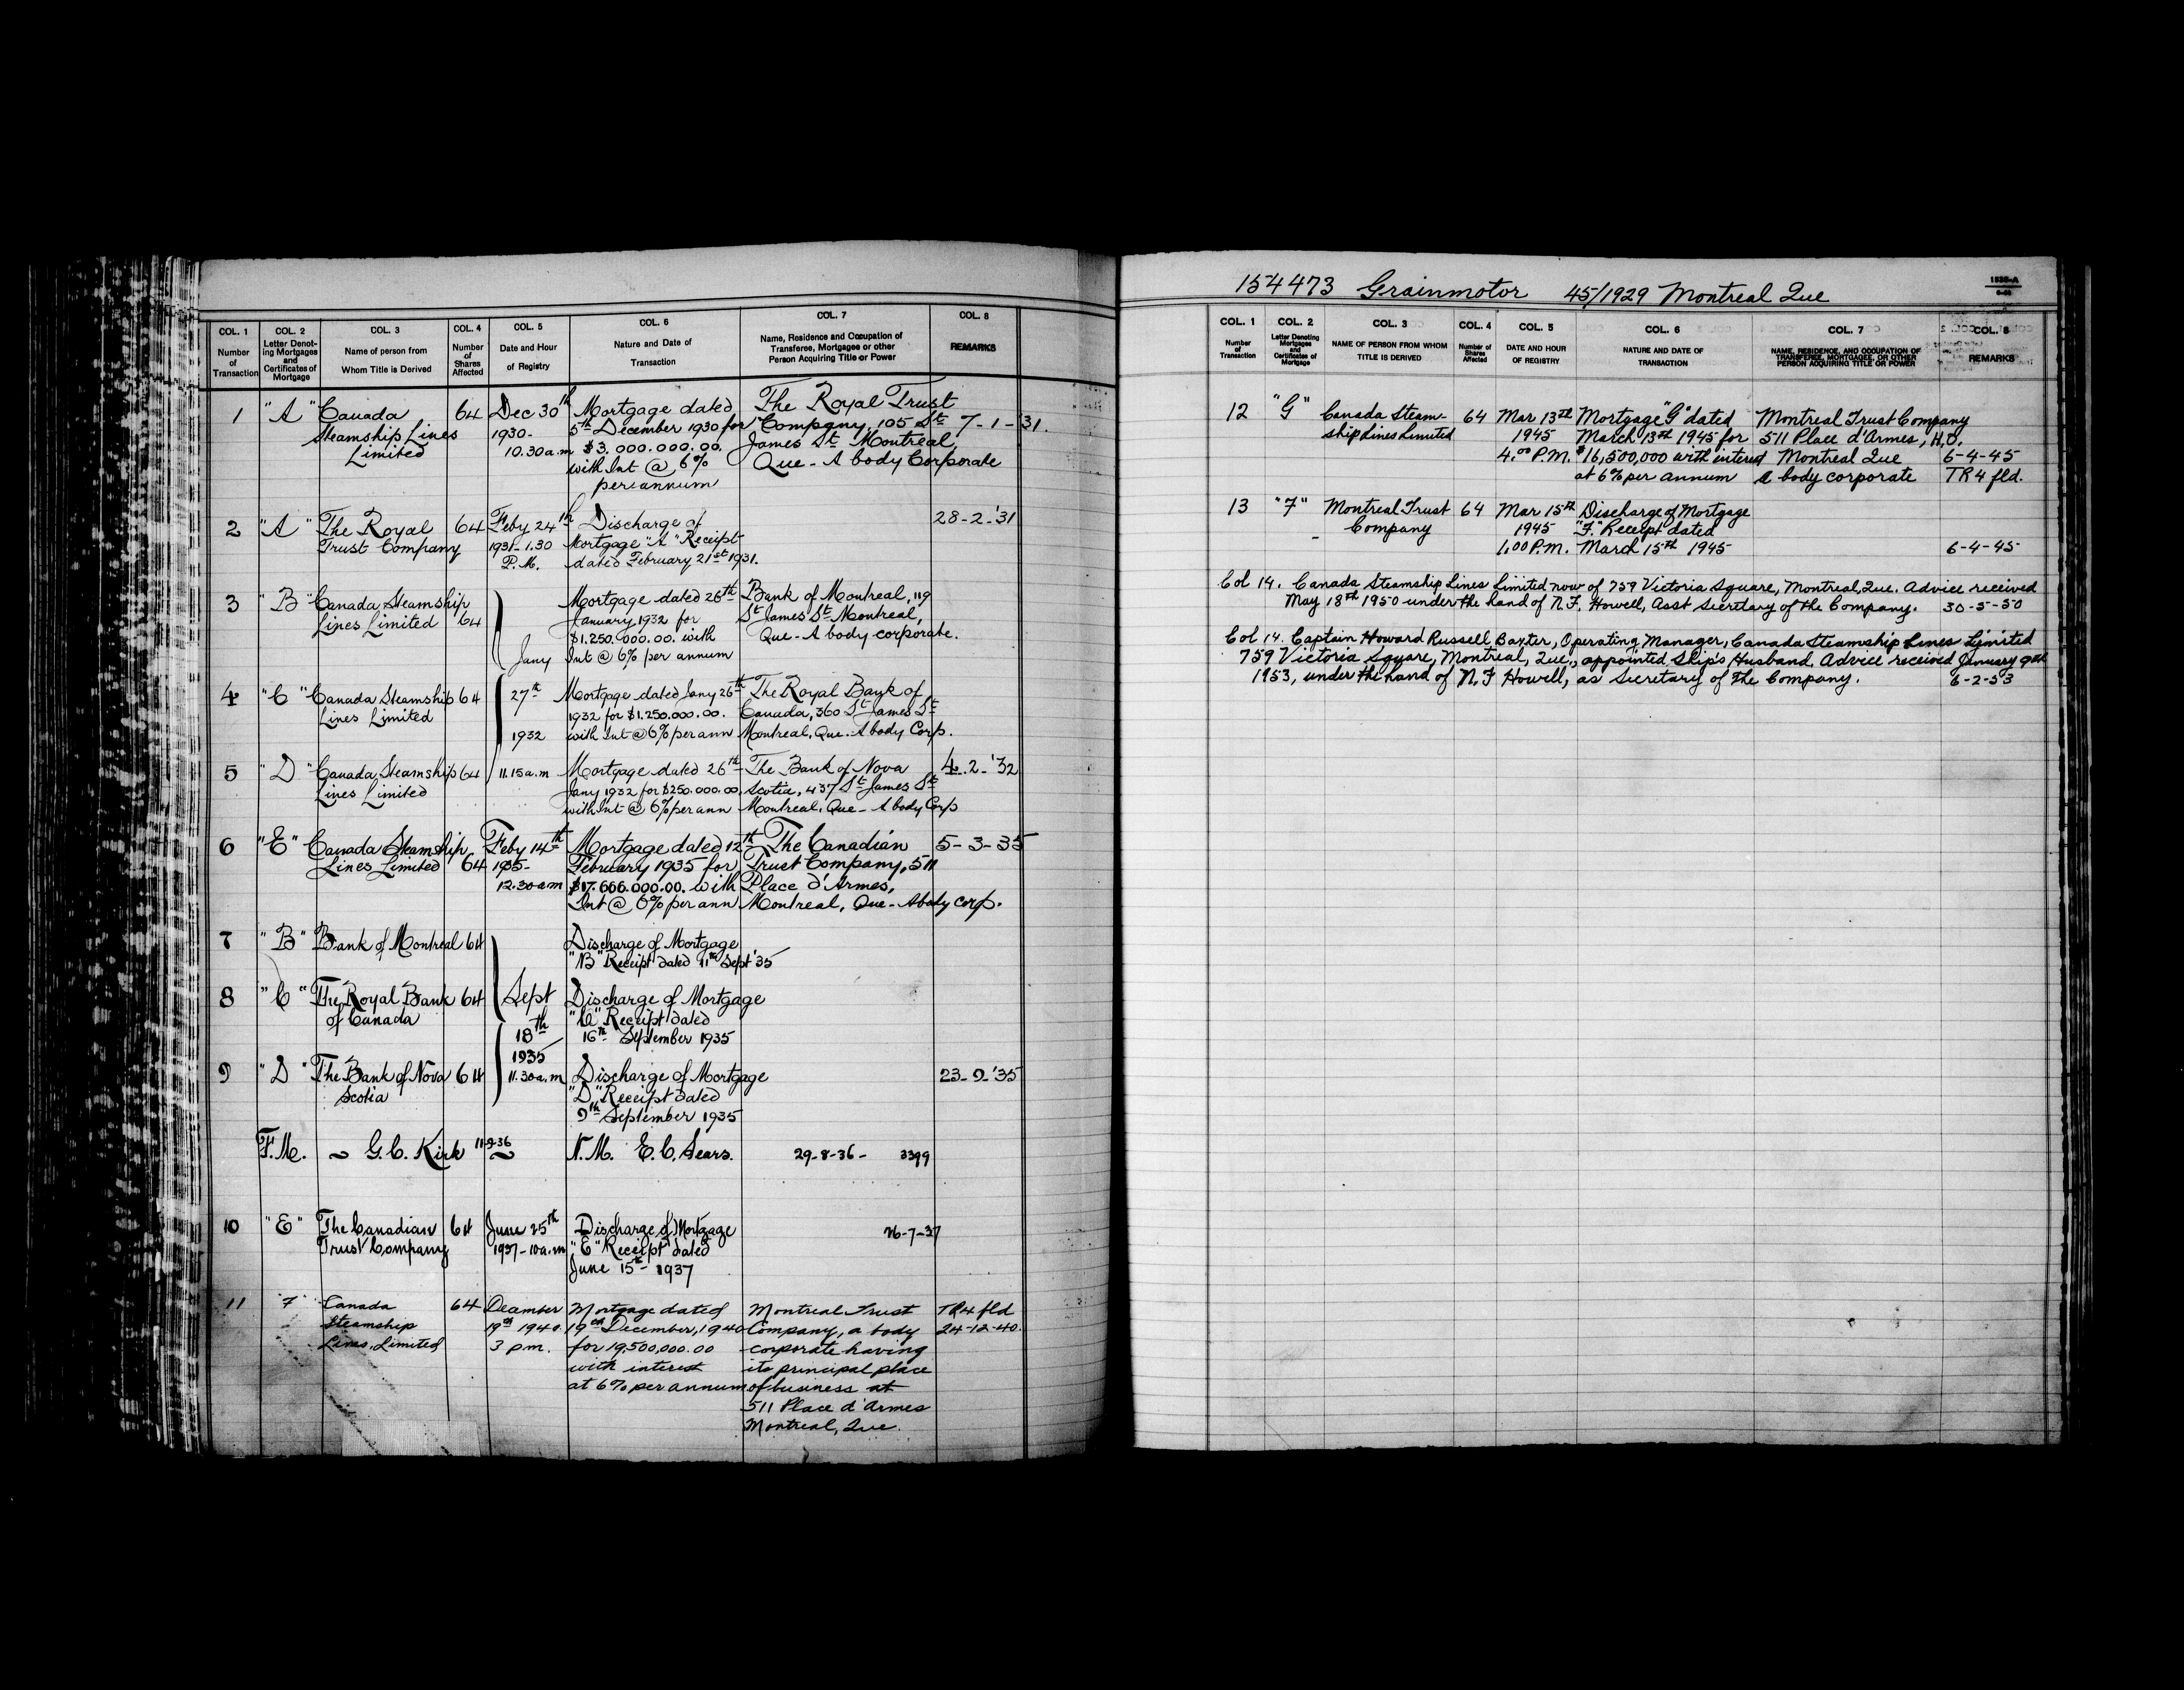 COL. 1 COL. 2 COL. 3 COL. 4 COL. 5 COL. 6 COL. 7 COL. 8
Number of Transaction
Letter Denoting Mortgages and Certificates of Mortgage
Name of person from Whom Title is Derived
Number of Shares Affected
Date and Hour of Registry
Nature and Date of Transaction
Name, Residence and Occupation of Transferee, Mortgagee or other Person Acquiring Title or Power
REMARKS
1 "A" Canada 64 Dec 30th Mortgage dated The Royal Trust
Steamship Lines 1930- 5th December 1930 for Company, 105 St 7-1-'31.
Limited 10.30 a.m $3.000.000.00. James St Montreal,
with Int @ 6% Que - A body Corporate
per annum
2 "A" The Royal 64 Feby 24th Discharge of 28-2-'31
Trust Company 1931-1.30 Mortgage "A" Receipt
P.M. dated February 21st 1931.
3 "B" Canada Steamship Mortgage dated 26th Bank of Montreal, 119
Lines Limited 64 January 1932 for St James St Montreal,
$1.250.000.00. with Que - A body corporate.
Jany Int @ 6% per annum
4 "C" Canada Steamship 64 27th Mortgage dated Jany 26th The Royal Bank of
Lines Limited 1932 for $1.250.000.00. Canada, 360 St James St
1932 with Int @ 6% per ann Montreal, Que. A body Corp.
5 "D" Canada Steamship 64 11.15 a.m Mortgage dated 26th The Bank of Nova 4.2-'32
Lines Limited Jany 1932 for $250.000.00, Scotia, 437 St James St
with Int @ 6% per ann Montreal. Que - A body Corp
6 "E" Canada Steamship Feby 14th Mortgage dated 12th The Canadian 5-3-35
Lines Limited 64 1935- February 1935 for Trust Company, 511
12.30 am with Place d'Armes,
Int @ 6% per ann Montreal, Que - A body corp.
7 "B" Bank of Montreal 64 Discharge of Mortgage
"B" Receipt dated 11th Sept '35
8 "C" The Royal Bank 64 Sept Discharge of Mortgage
of Canada "C" Receipt dated
18th 16th September 1935
1935
9 "D" The Bank of Nova 64 11.30 a.m Discharge of Mortgage 23-9-'35
Scotia "D" Receipt dated
9th September 1935
F.M. ~ G.C. Kirk 11-9-36 N.M. E.C. Sears. 29-8-36- 3399
10 "E" The Canadian 64 June 25th Discharge of Mortgage 26-7-37
Trust Company 1937-10 a.m "E" Receipt dated
June 15th - 1937
11 "F" Canada 64 December Mortgage dated Montreal Trust TR4 fld
Steamship 19th 1940. 19th December, 1940 Company, a body 24-12-40.
Lines, Limited 3 p.m. for 19,500,000.00 corporate having
with interest its principal place
at 6% per annum of business at
511 Place d'Armes
Montreal, Que.
154473 Grainmotor 45/1929 Montreal Que
COL. 1 COL. 2 COL. 3 COL. 4 COL. 5 COL. 6 COL. 7 COL. 8
Number of Transaction
Letter Denoting Mortgages and Certificates of Mortgage
NAME OF PERSON FROM WHOM TITLE IS DERIVED
Number of Shares Affected
DATE AND HOUR OF REGISTRY
NATURE AND DATE OF TRANSACTION
NAME, RESIDENCE, AND OCCUPATION OF TRANSFEREE, MORTGAGEE, OR OTHER PERSON ACQUIRING TITLE OR POWER
REMARKS
12 "G" Canada Steam- 64 Mar 13th Mortgage "G" dated Montreal Trust Company
ship Lines Limited 1945 March 13th 1945 for 511 Place d'Armes, H.O.
4.00 P.M. $16,500,000 with interest Montreal Que 6-4-45
at 6% per annum A body corporate TR4 fld.
13 "F" Montreal Trust 64 Mar 15th Discharge of Mortgage
Company 1945 "F" Receipt dated
1.00 P.M. March 15th 1945 6-4-45
Col 14. Canada Steamship Lines Limited now of 759 Victoria Square, Montreal, Que. Advice received
May 18th 1950 under the hand of N.F. Howell, Asst Secretary of the Company. 30-5-50
Col 14. Captain Howard Russell Baxter, Operating Manager, Canada Steamship Lines Limited
759 Victoria Square, Montreal, Que., appointed Ship's Husband. Advice received January 9th
1953, under the hand of N.F Howell, as Secretary of the Company. 6-2-53